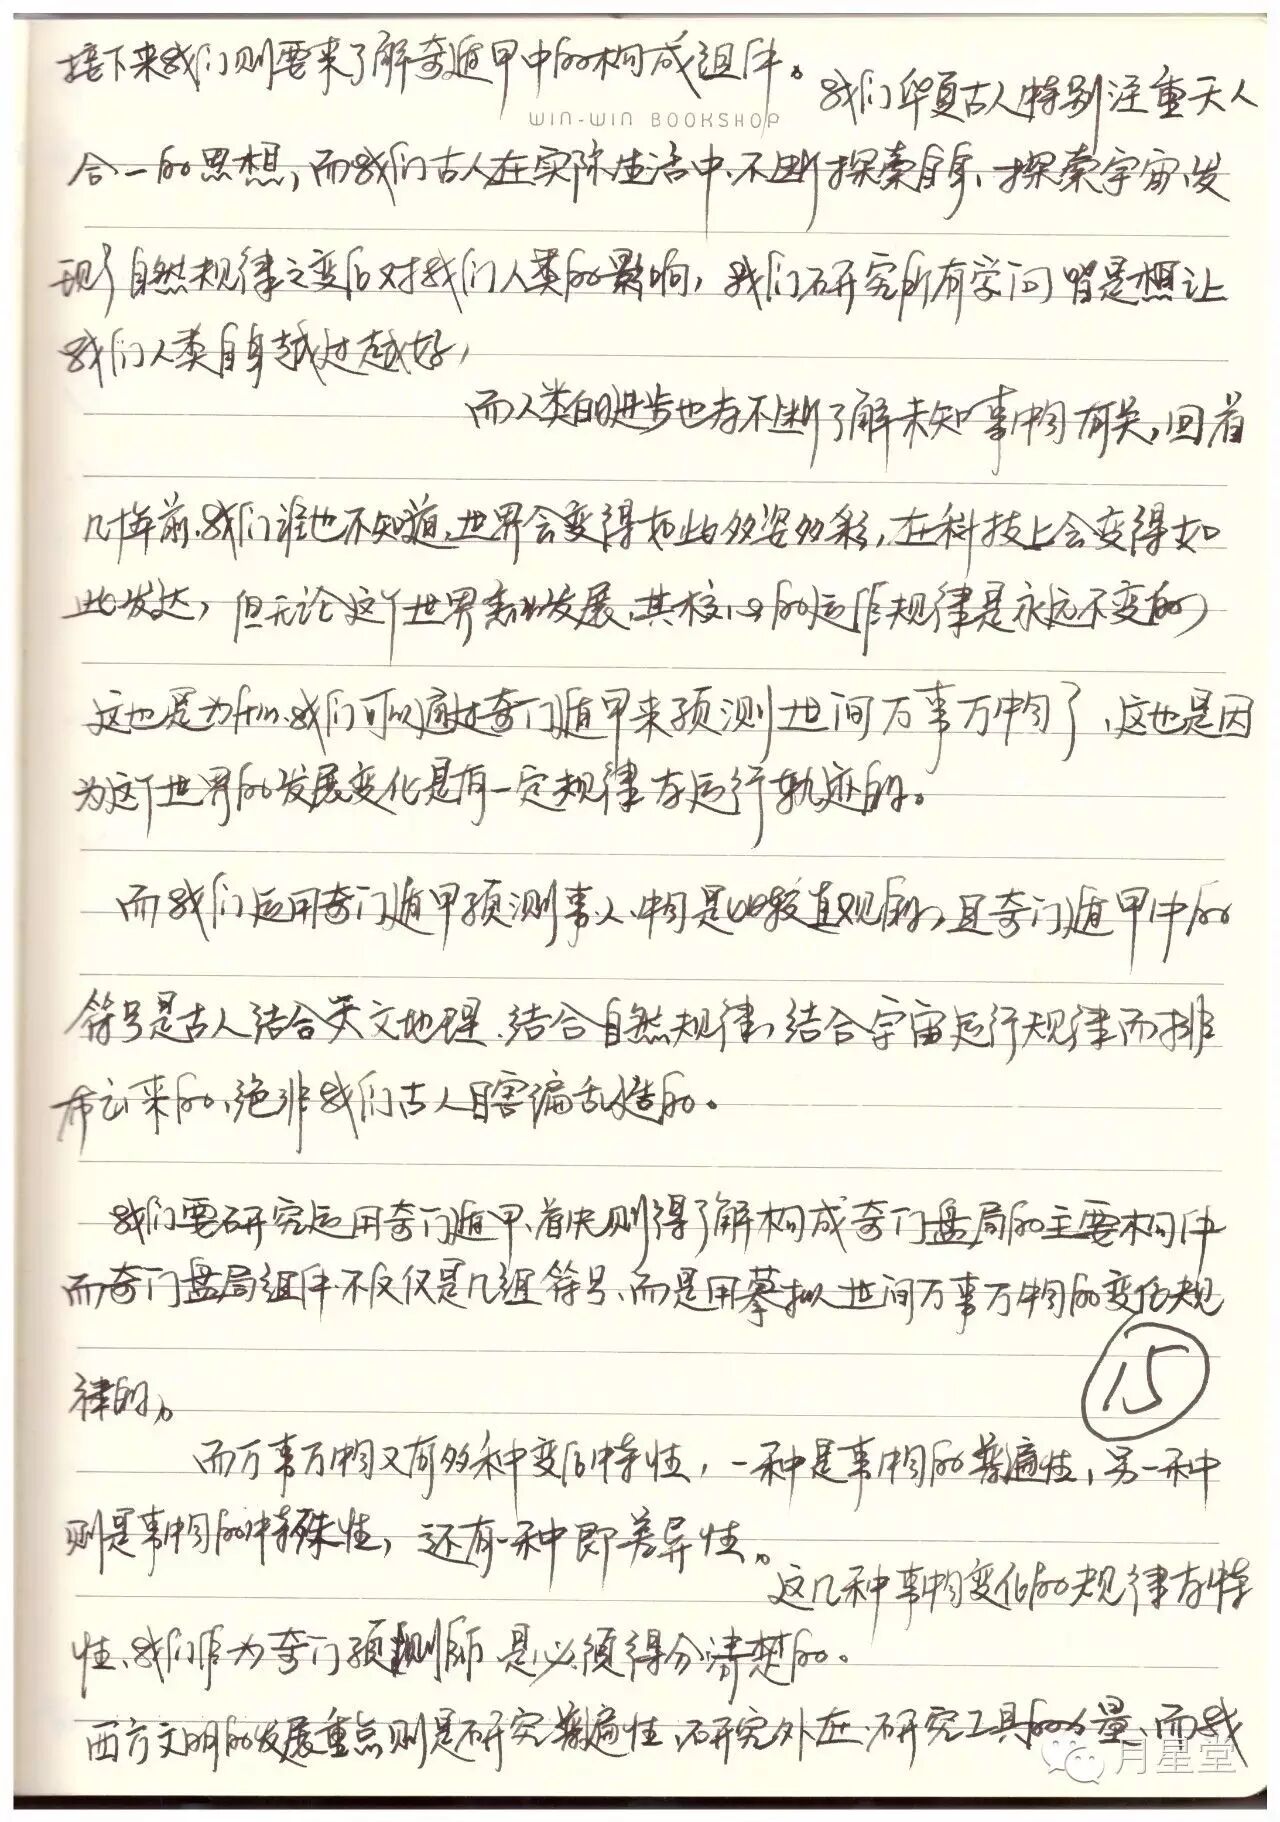 接下来我们则要来了解奇遁甲中的构成组件。
我们华夏古人特别注重天人
WIN-WIN BOOKSHOP
合一的思想，而我们古人在实际生活中不断探索自身、探索宇宙、发
现了自然规律之变化对我们人类的影响，我们研究所有学问皆是想让
我们人类自身越过越好，
而人类的进步也在不断了解未知事物有关，回首
几十年前、我们谁也不知道，世界会变得如此多姿多彩，在科技上会变得如
此发达，但无论这个世界怎么发展，其核心的运作规律是永远不变的，
这也是为什么我们可以通过奇门遁甲来预测世间万事万物了，这也是因
为这个世界的发展变化是有一定规律在运行轨迹的。
而我们运用奇门遁甲预测事、人、物是比较直观的，且奇门遁甲中的
符号是古人结合天文地理、结合自然规律，结合宇宙运行规律而排
布出来的，绝非我们古人瞎编乱造的。
我们要研究运用奇门遁甲、首先则得了解构成奇门盘局的主要构件
而奇门盘局组件不仅仅是几组符号、而是用摹拟世间万事万物的变化规
律的。
15
而万事万物又有多种变化特性，一种是事物的普遍性，另一种
则是事物的特殊性，还有一种即差异性。
这几种事物变化的规律在特
性、我们作为奇门预测师是必须得分清楚的。
西方文明的发展重点则是研究普遍性、研究外在、研究工具的力量、而我
月星堂